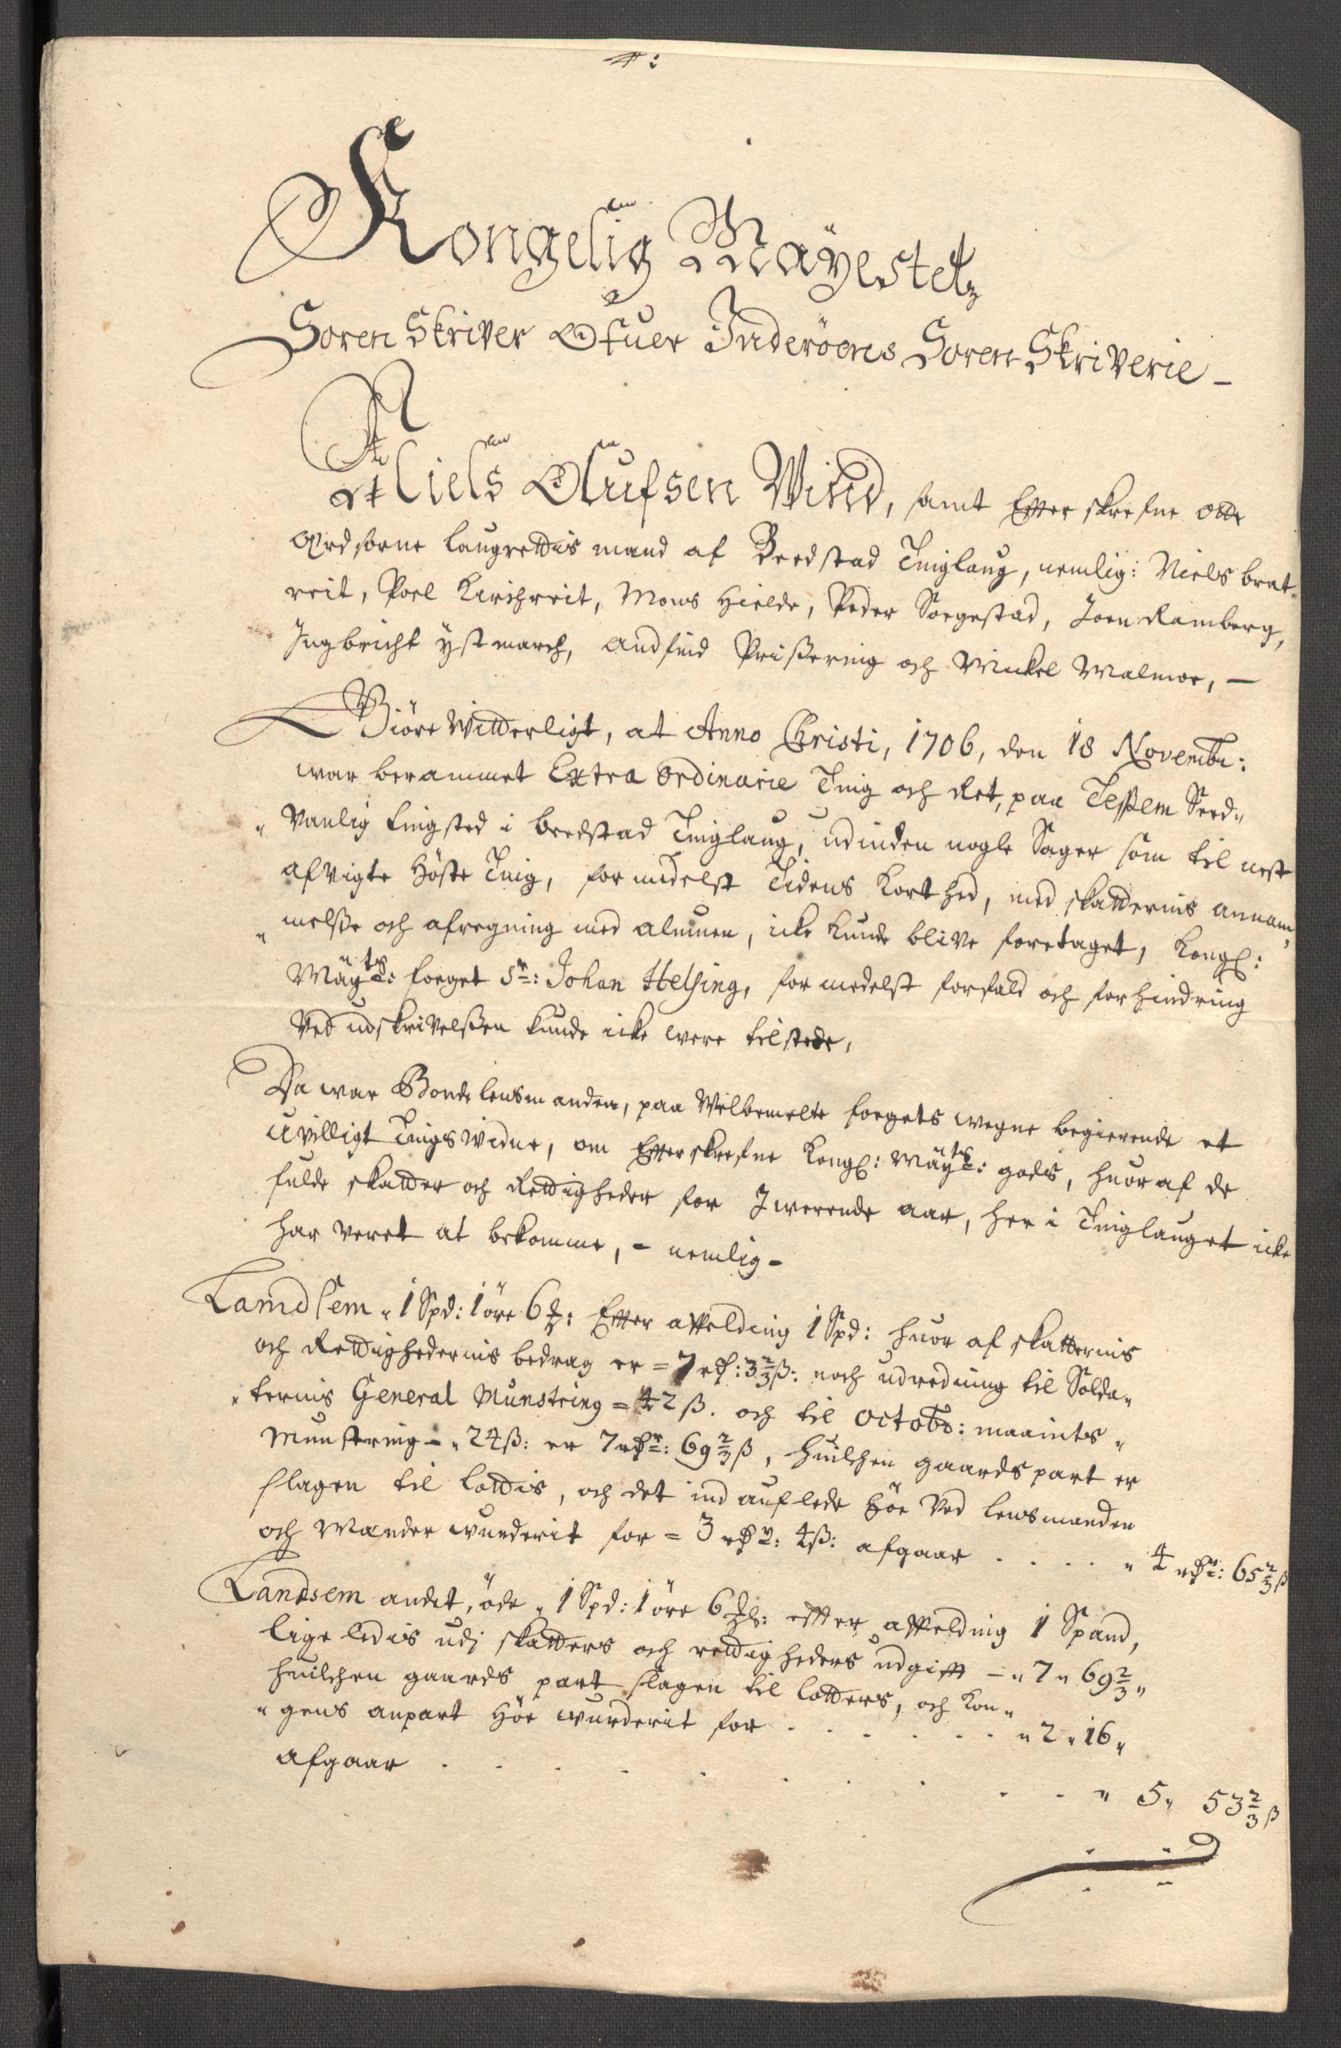 Kongelig Mäyestetz
Soren Skriver Ofuer Inderöens Soren Skriverie -
Niels Olufsen Wind, samt Effterskrefne otte
Ædsorne laugrettis mænd af Beedstad Tinglaug, nemlig: Niels brat-
reit, Poel Kirchreit, Mons Hielde, Peder Sorgestad, Joen Ramberg,
Ingbricht Ystmarch, Andfind Prißering och Mickel Malmoe, -
Giöre Witterligt, at Anno Christi, 1706, den 18 Novembr:
war berammet Extra ordinarie Ting och Ret, paa Teßem Sed-
vanlig tingsted i beedstad Tinglaug, udinden nogle Sager som til nest
afvigte Höste Ting, formidelst Tidens Korthed, med skatternis annam-
melße och afregning med almuen, icke kunde blive foretaget, Kongl:
Mäyts: foeget Sr: Johan Helsing, formedelst forfald och forhindring
ved udskrivelßen kunde icke were tilstede,
Da war Bondelensmanden, paa Welbemelte foegets wegne begierende et
uvilligt Tingswidne, om Effterskrefne Kongl: Mäyts: gods, huoraf de
fulde skatter och Rettigheder for Jwerende aar, her i Tinglauget icke
har veret at bekomme, - nemlig -
Landsem 1 Spd: 1 öre 6 : Effter affelding 1 Spd: huor af skatternis
och Rettighedernis bedrag er = 7 rd: 3 2/3 ß: noch udredning til Solda-
ternis General Munstring = 42 ß. och til Octobr: maanits
Munstring - 24 ß: er 7 rdr: 69 2/3 ß, huilchen gaardspart er
slagen til lottis, och det ind auflede Höe ved lensmanden
och Mænder wurderit for = 3 rdr: 4 ß: afgaar . . . . 4 rdr: 65 2/3 ß
Landsem andet, öde 1 Spd: 1 öre 6 : effter affelding 1 Spand,
lige ledis udj skatters och rettigheders udgifft - 7 " 69 2/3 "
huilchen gaards part slagen til lotters, och Kon-
gens anpart Höe wurderit for . . . . . " 2 " 16 "
afgaar . . . . . . . . . " 5 " 53 2/3 ß